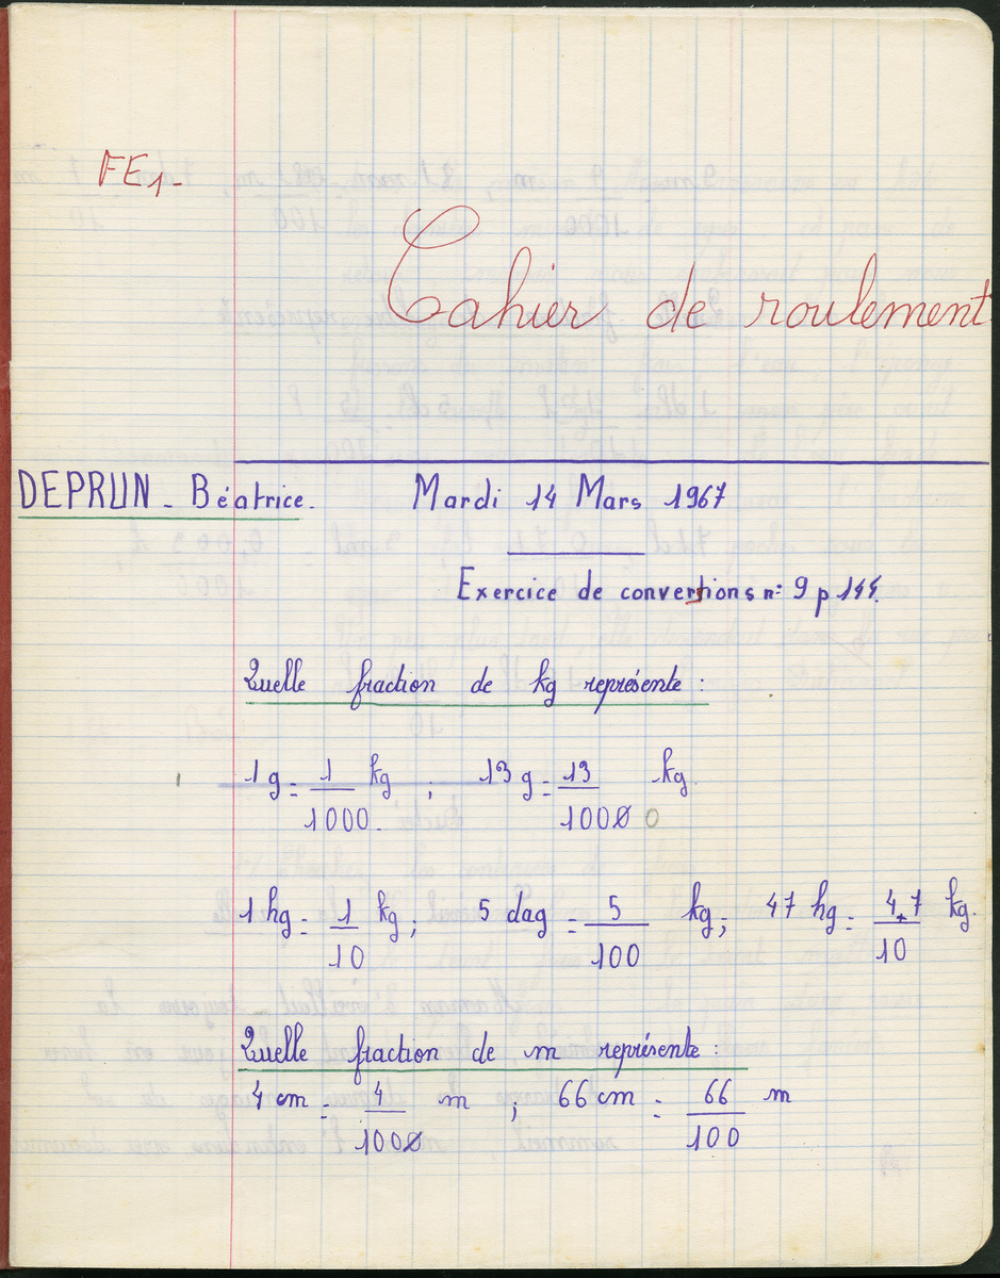 FE1-
Cahier de roulement
DEPRUN - Béatrice. Mardi 14 Mars 1967
Exercice de conversions n: 9 p 144.
Quelle fraction de kg représente :
1 g = 1/1000 kg ; 13 g = 13/1000 0 kg.
1 hg = 1/10 kg ; 5 dag = 5/100 kg ; 47 hg = 47/10 kg.
Quelle fraction de m représente :
4 cm = 4/100 m ; 66 cm = 66/100 m